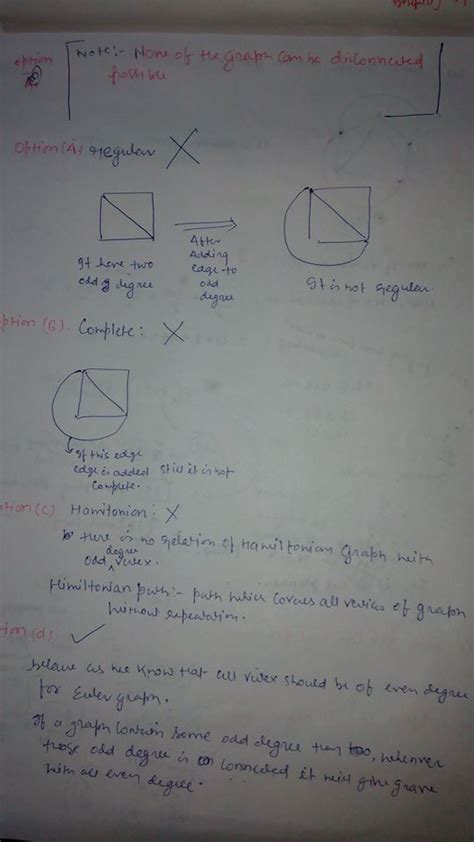 option
Note:- None of the graph can be disconnected
possible
Option(A) regular X
It have two
odd degree
After
Adding
edge to
odd
degree
It is not regular
ption (B). Complete: X
If this edge
edge is added still it is not
complete.
tion(c) Hamitonian: X
there is no relation of Hamiltonian Graph with
odd degree virtex.
Himiltonian path:- path which covers all vertices of graph
without repeatation.
tion (d) ✓
because as we know that all virtex should be of even degree
for Euler graph.
If a graph contain some odd degree then too, whenever
those odd degree is connected it will give
with all even degree.